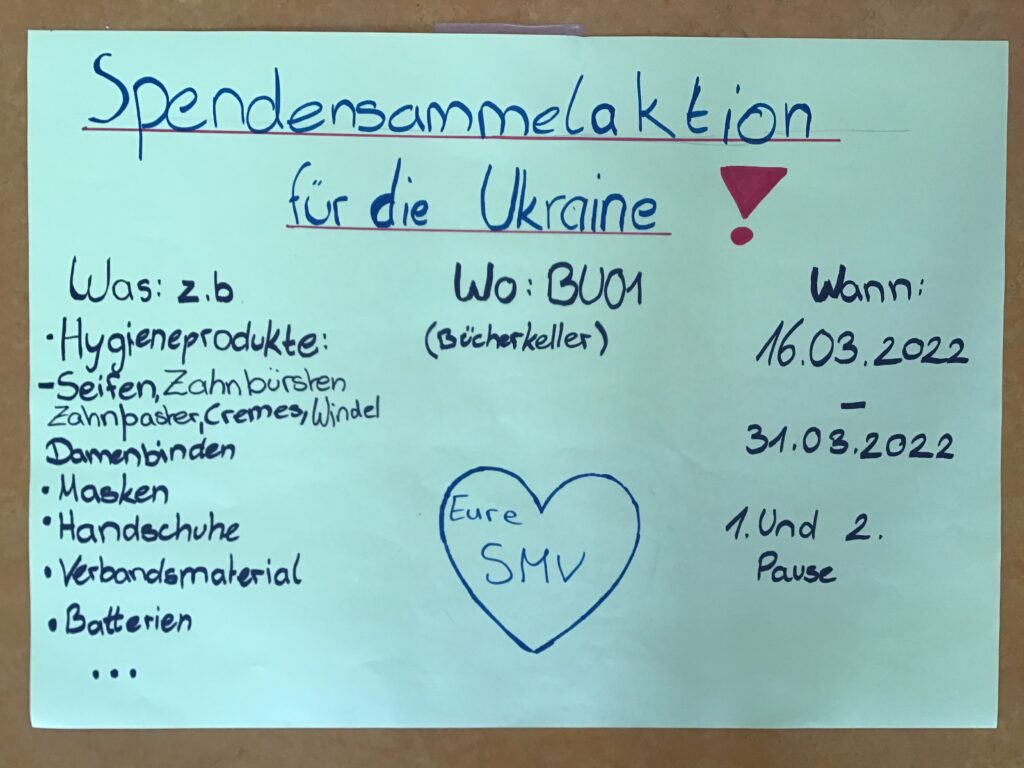 Spendensammelaktion
für die Ukraine !
Was: z.b
• Hygieneprodukte:
- Seifen, Zahnbürsten
Zahnpaster, Cremes, Windel
Damenbinden
• Masken
• Handschuhe
• Verbandsmaterial
• Batterien
...
Wo: BU01
(Bücherkeller)
Eure
SMV
Wann:
16.03.2022
-
31.03.2022
1. Und 2.
Pause